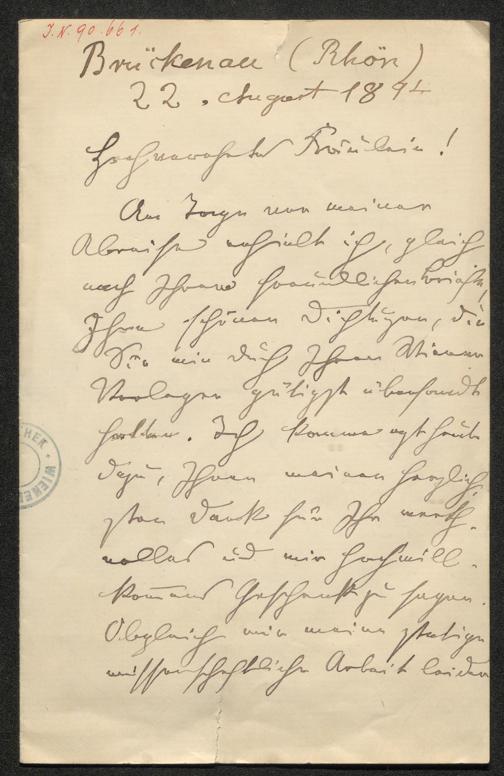 J.N. 90.661.
Brückenau (Rhön)
22. August 1894
Hochverehrtes Fräulein!
Am Tage vor meiner
Abreise erhielt ich, gleich
nach Ihrem freundlichen Briefe,
Ihre schönen Dichtungen, die
Sie mir durch Ihren Wiener
Verleger gütigst übersandt
hatten. Ich komme erst heute
dazu, Ihnen meinen herzlich-
sten Dank für Ihr werth-
volles und mir hochwill-
kommenes Geschenk zu sagen.
Obgleich mir meine stetige
wissenschaftliche Arbeit leider
WIENER